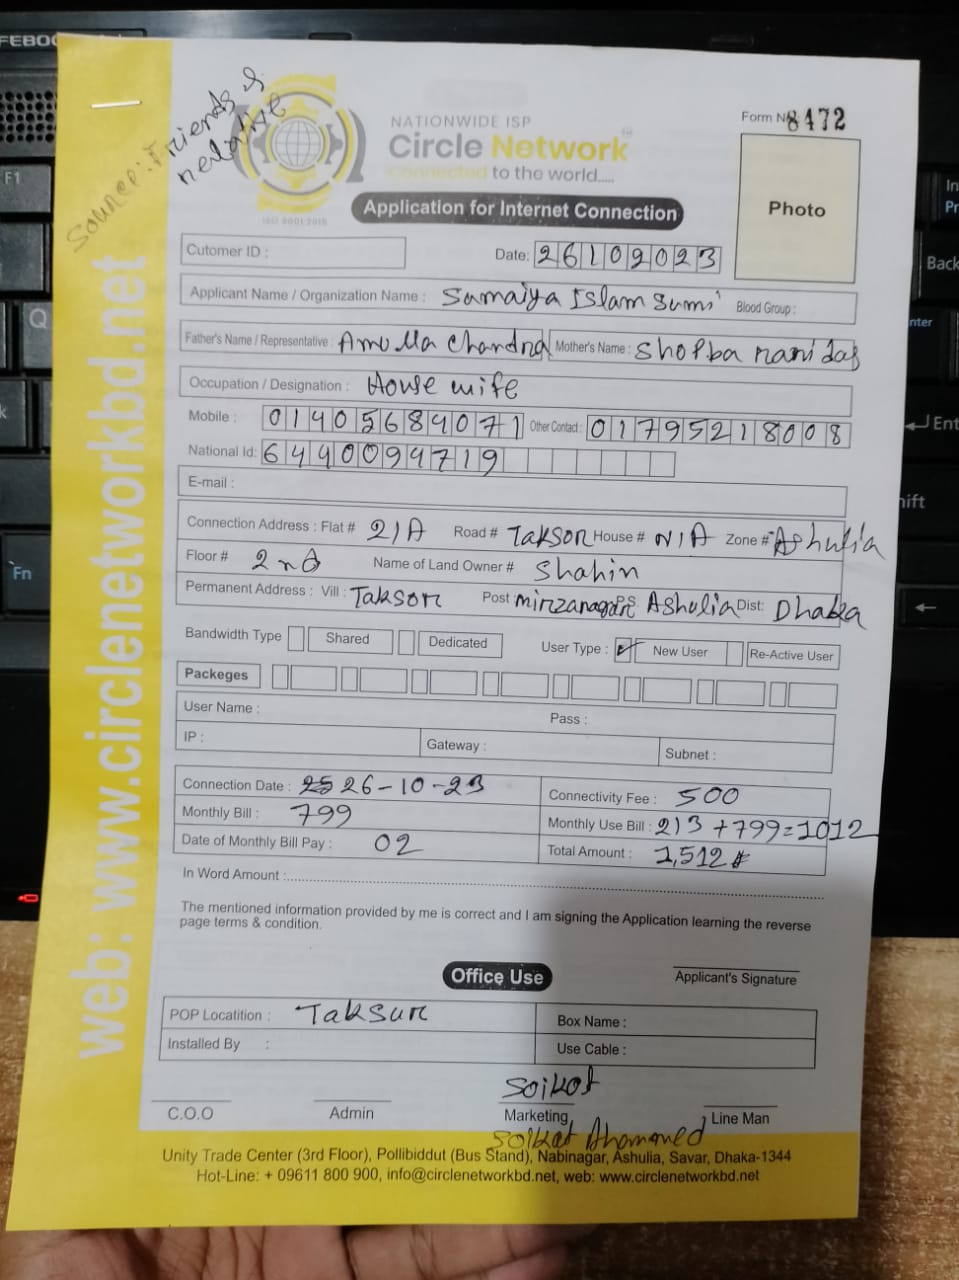 FEBOO
Source: Friends &
relative
NATIONWIDE ISP
Circle Network
Connected to the world.....
ISO 9001:2015
Form No 8472
Photo
Application for Internet Connection
Cutomer ID :
Date: 26102023
Applicant Name / Organization Name : Sumaiya Islam Sumi Blood Group :
Father's Name / Representative : Amulla Chandra Mother's Name : Shopba rani das
Occupation / Designation : House wife
Mobile : 01405684071 Other Contact : 01795218008
National Id: 6440094719
E-mail :
Connection Address : Flat # 2/A Road # Taksor House # N/A Zone # Ashulia
Floor # 2nd Name of Land Owner # Shahin
Permanent Address : Vill : Taksor Post mirzanagar PS Ashulia Dist: Dhaka
Bandwidth Type Shared Dedicated User Type : New User Re-Active User
Packeges
User Name : Pass :
IP : Gateway : Subnet :
Connection Date : 26-10-23 Connectivity Fee : 500
Monthly Bill : 799 Monthly Use Bill : 213 +799=1012
Date of Monthly Bill Pay : 02 Total Amount : 1,512
In Word Amount :
The mentioned information provided by me is correct and I am signing the Application learning the reverse
page terms & condition.
Applicant's Signature
Office Use
POP Locatition : Taksur Box Name :
Installed By : Use Cable :
Soikot
C.O.O Admin Marketing Line Man
Soikat Ahommed
Unity Trade Center (3rd Floor), Pollibiddut (Bus Stand), Nabinagar, Ashulia, Savar, Dhaka-1344
Hot-Line: + 09611 800 900, info@circlenetworkbd.net, web: www.circlenetworkbd.net
web: www.circlenetworkbd.net
F1
Q
Fn
Back
Ent